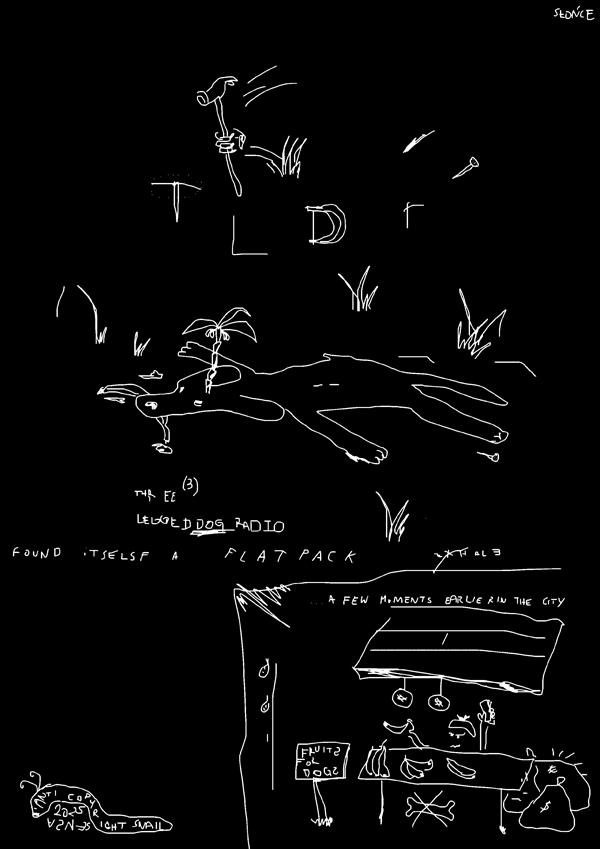 SŁOŃCE
T L D r
THREE (3)
LEGGED DOG RADIO
FOUND ITSELF A FLATPACK
...A FEW MOMENTS EARLIER IN THE CITY
FRUITS
FOR
DOGS
ANTI COPYRIGHT SNAIL
2025